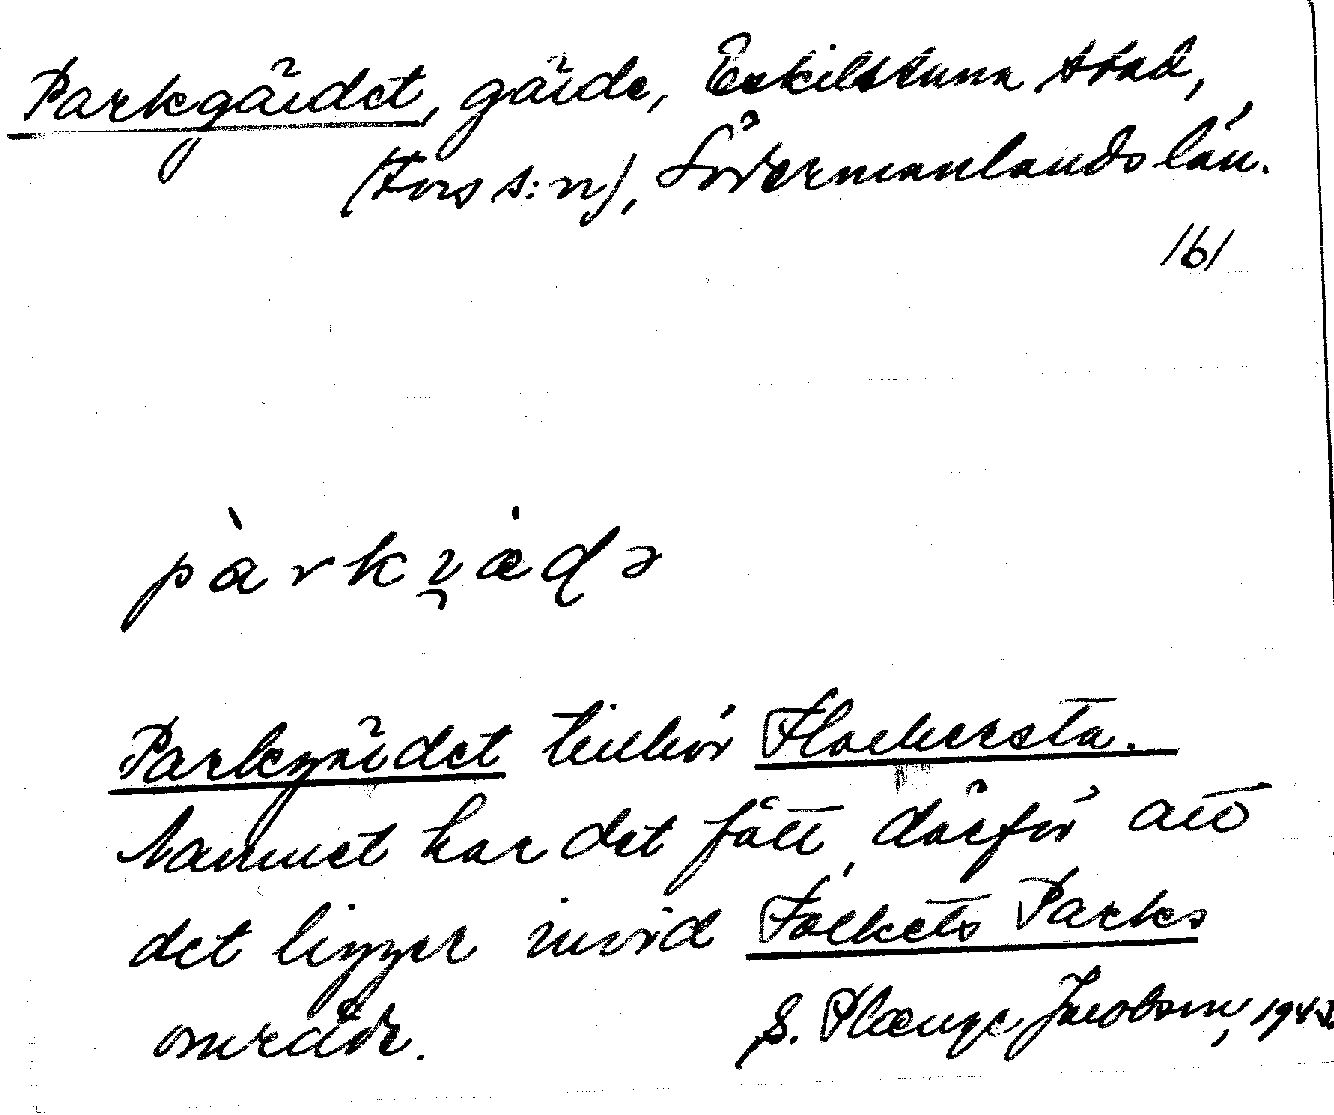 Parkgärdet, gärde, Eskilstuna stad,
(Fors s:n), Södermanlands län.
161
pàrkjæḍə
Parkgärdet tillhör Flackersta.
Namnet har det fått därför att
det ligger invid Folkets Parks
område.
S. Plænge Jacobson, 1942